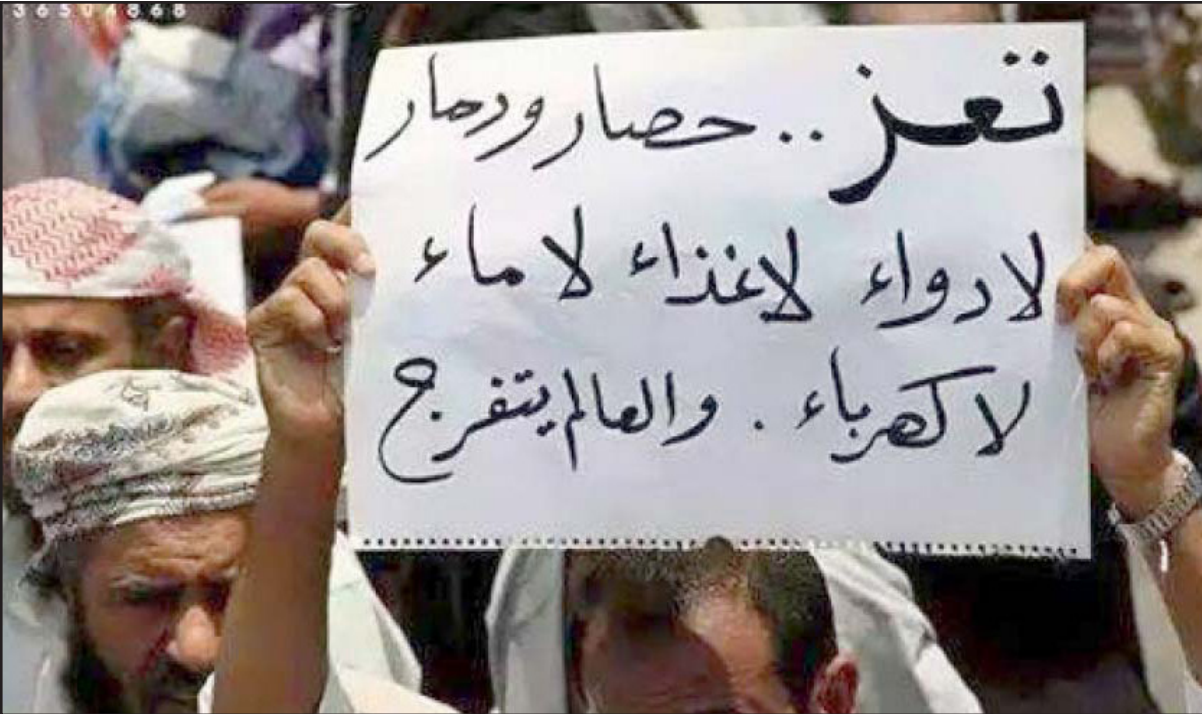 36504868
تعز .. حصار ودمار
لا دواء لا غذاء لا ماء
لا كهرباء . والعالم يتفرج